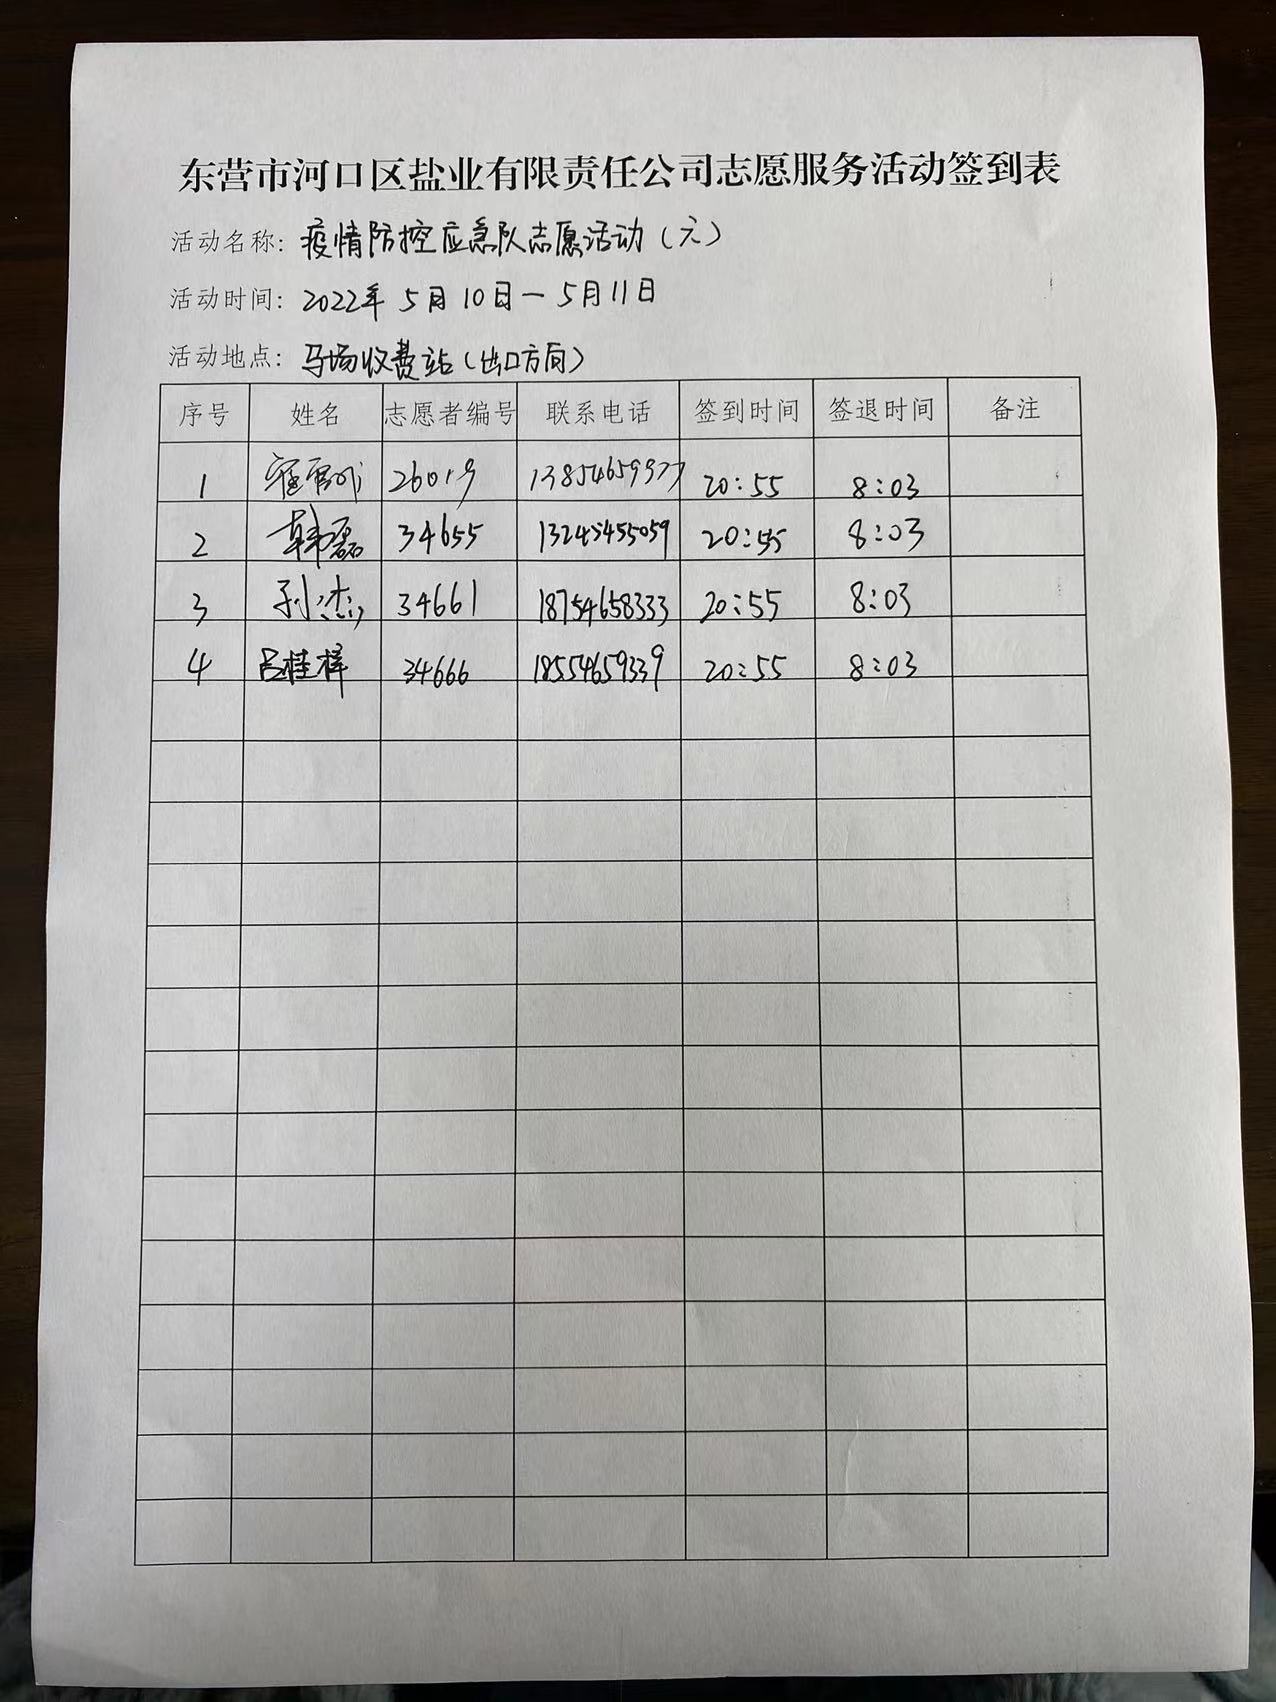 东营市河口区盐业有限责任公司志愿服务活动签到表
活动名称: 疫情防控应急队志愿活动(六)
活动时间: 2022年5月10日一5月11日
活动地点: 马场收费站(出口方向)
序号 姓名 志愿者编号 联系电话 签到时间 签退时间 备注
1 26019 20:55 8:03
2 韩磊 34655 20:55 8:03
3 孙杰 34661 18754658333 20:55 8:03
4 吕桂梓 34666 18554659339 20:55 8:03